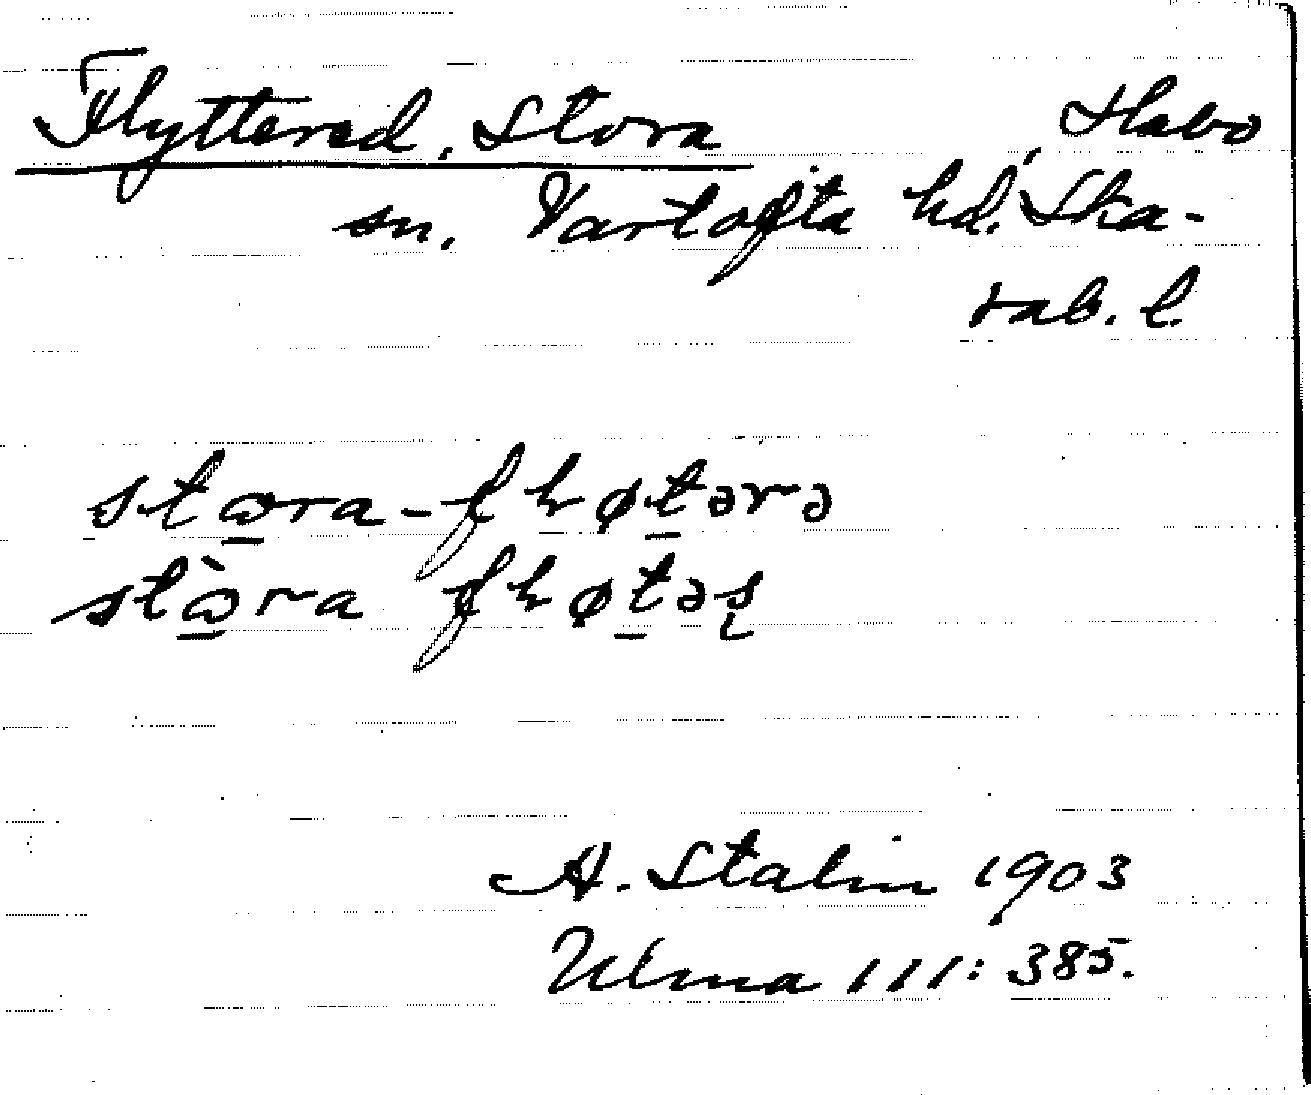 Flyttered, Stora Habo
sn. Vartofta hd, Ska-
rab. l.
stɷ̱ra-fƚøṯərə
stɷ̱̀ra fƚøṯəʂ
A. Stalin 1903
Ulma 111: 385.